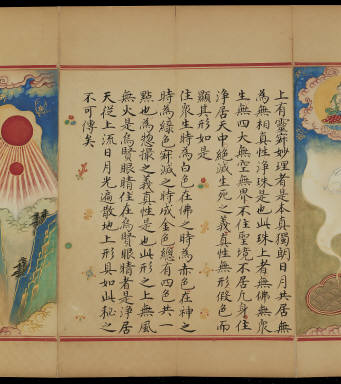 上有靈窮妙理者是本真獨朝日月共居無
為無相真性淨珠是也此珠上者無佛無眾
生無四大無空無界不住聖境不居凡身住
淨居天中絕滅生死之義真性無形假色而
顯其形如是
住眾生時為白色在佛之時為赤色在神之
時為綠色寂滅之時成金色總有四色共一
點也為惣撮之義真性是也此形之上無風
無火是烏賢眼睛住在烏賢眼睛者是淨居
天從上流日月光遍散地上形具如此秘之
不可傳矣